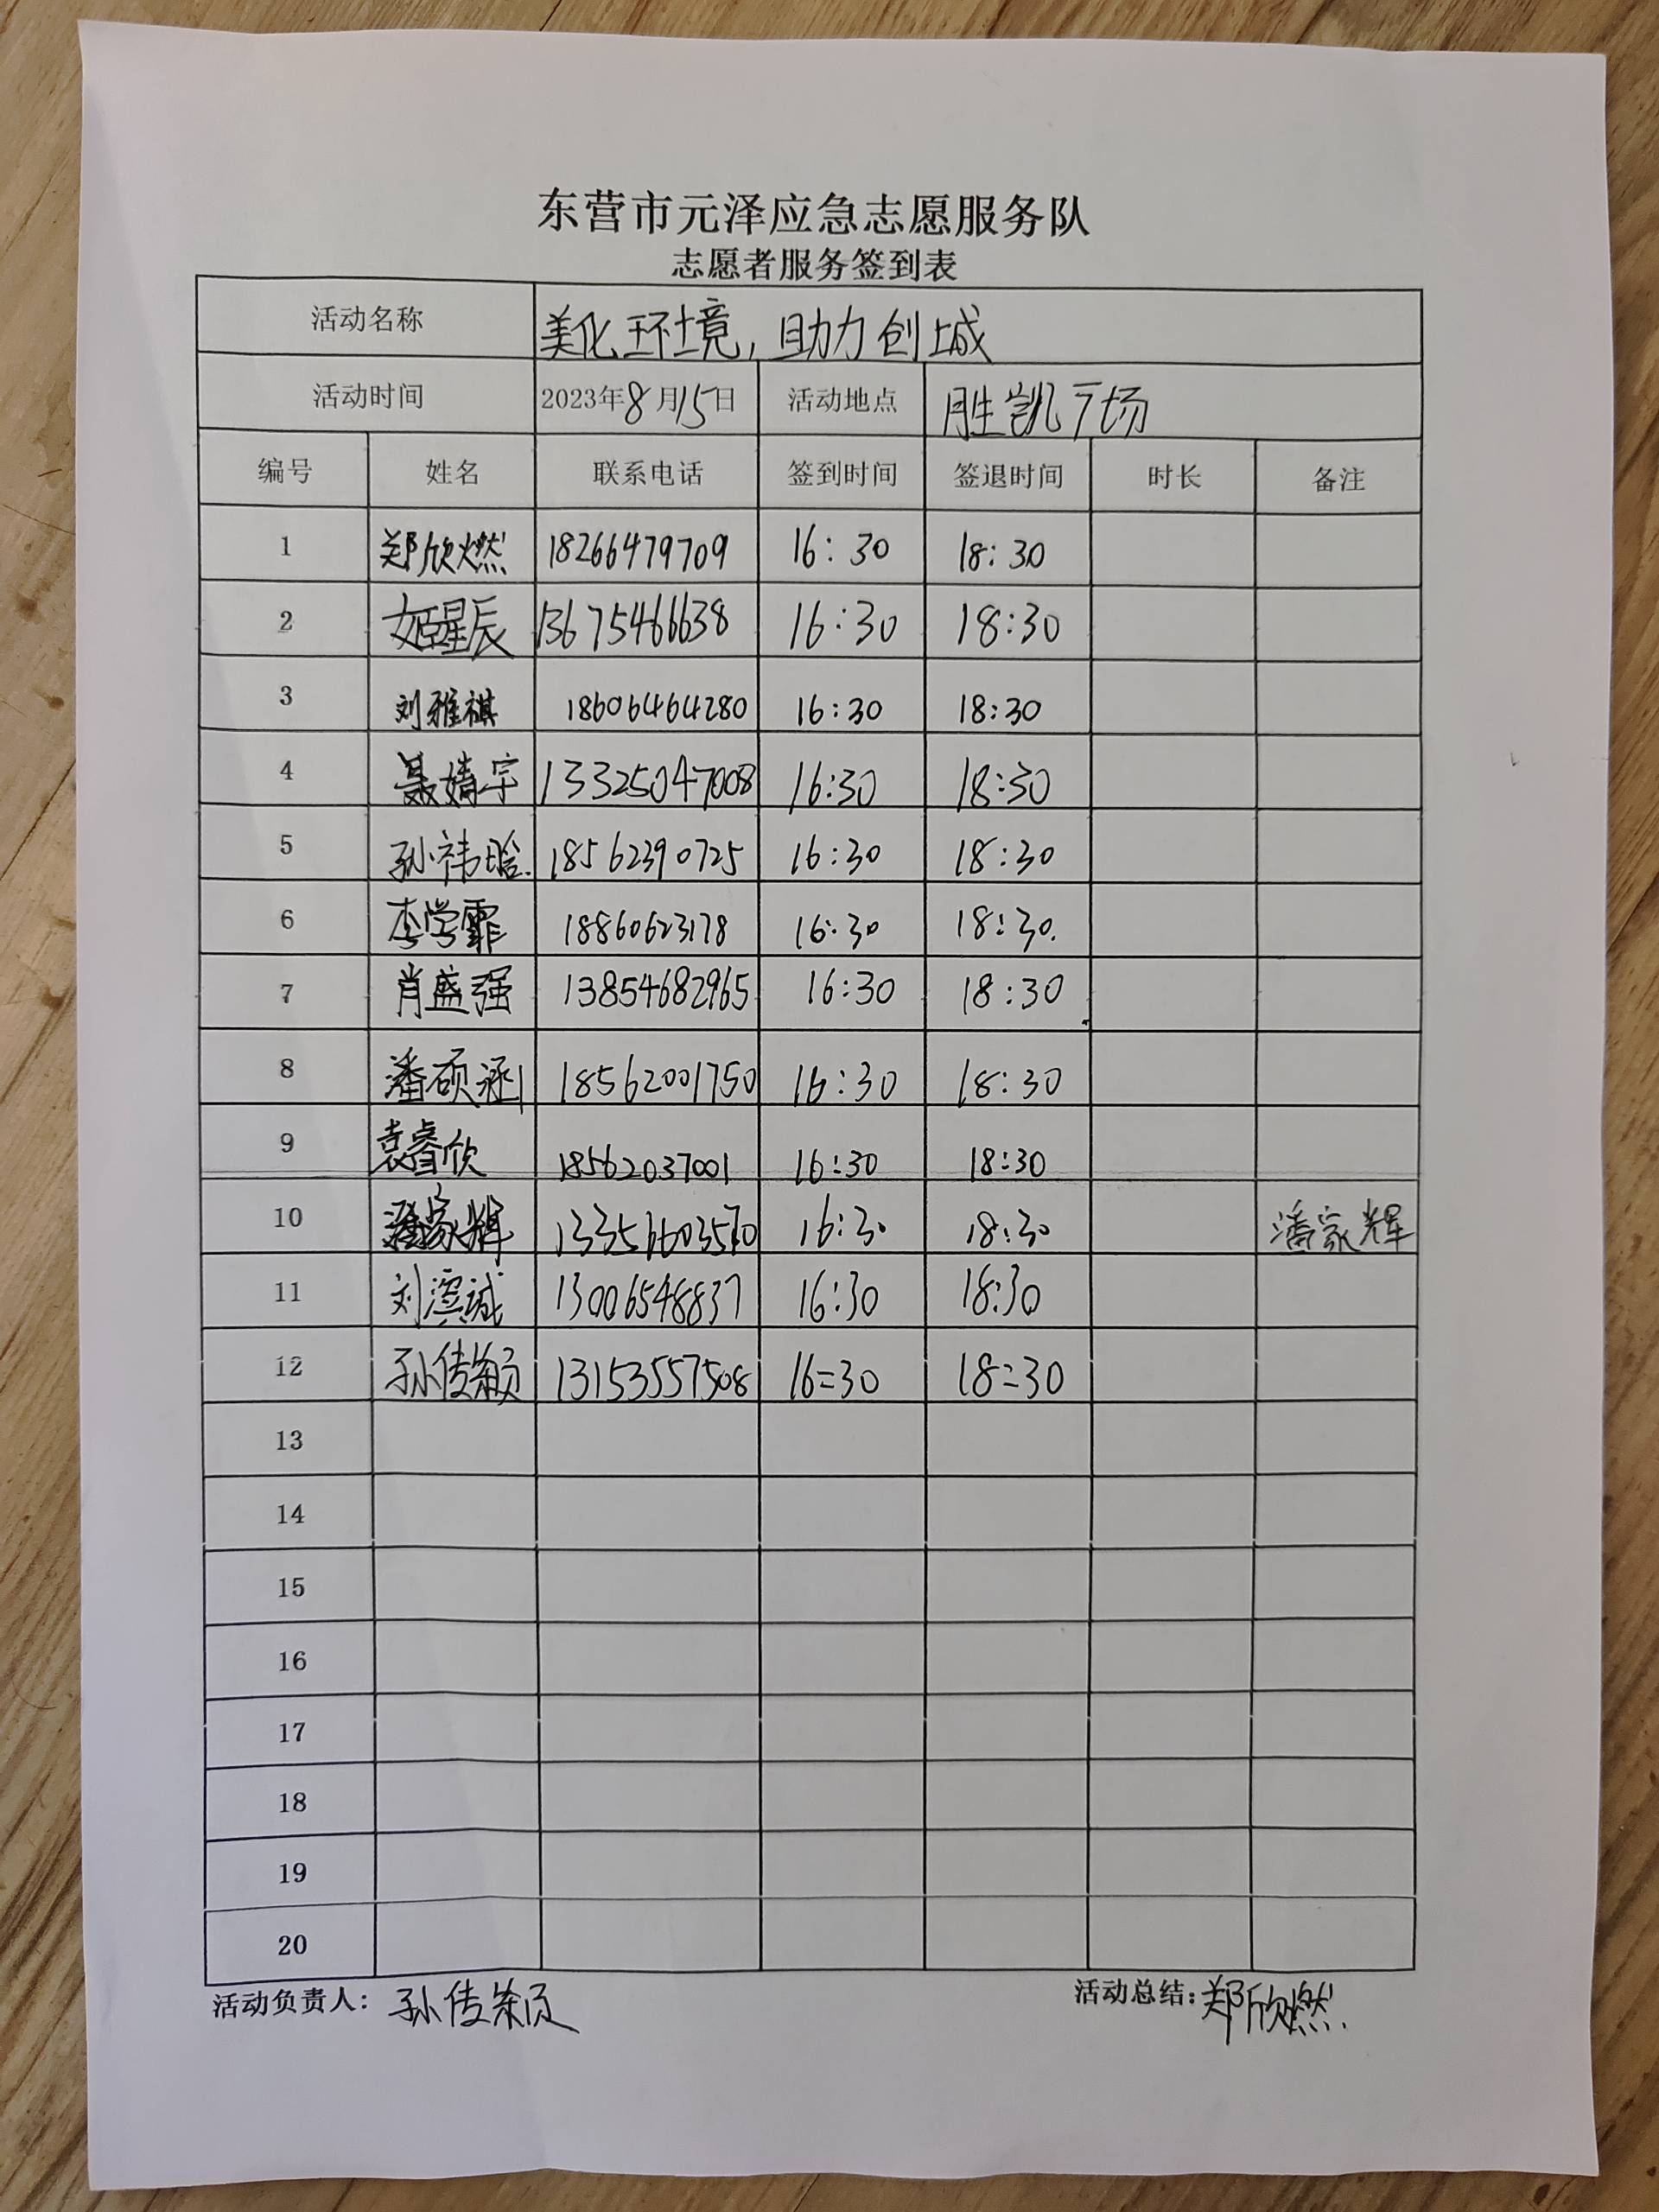 东营市元泽应急志愿服务队
志愿者服务签到表
活动名称 美化环境，助力创城
活动时间 2023年8月15日 活动地点 胜凯广场
编号 姓名 联系电话 签到时间 签退时间 时长 备注
1 郑欣燃 18266479709 16:30 18:30
2 姬星辰 13675466638 16:30 18:30
3 刘雅祺 18606464280 16:30 18:30
4 聂婧宇 13325047008 16:30 18:30
5 孙祎晗 18562390725 16:30 18:30
6 李学霏 18860623178 16:30 18:30
7 肖盛强 13854682965 16:30 18:30
8 潘硕涵 18562001750 16:30 18:30
9 袁睿欣 18562037001 16:30 18:30
10 潘家辉 16:30 18:30 潘家辉
11 刘滨诚 13006548837 16:30 18:30
12 孙传颖 13153557508 16=30 18=30
13
14
15
16
17
18
19
20
活动负责人：孙传颖 活动总结：郑欣燃